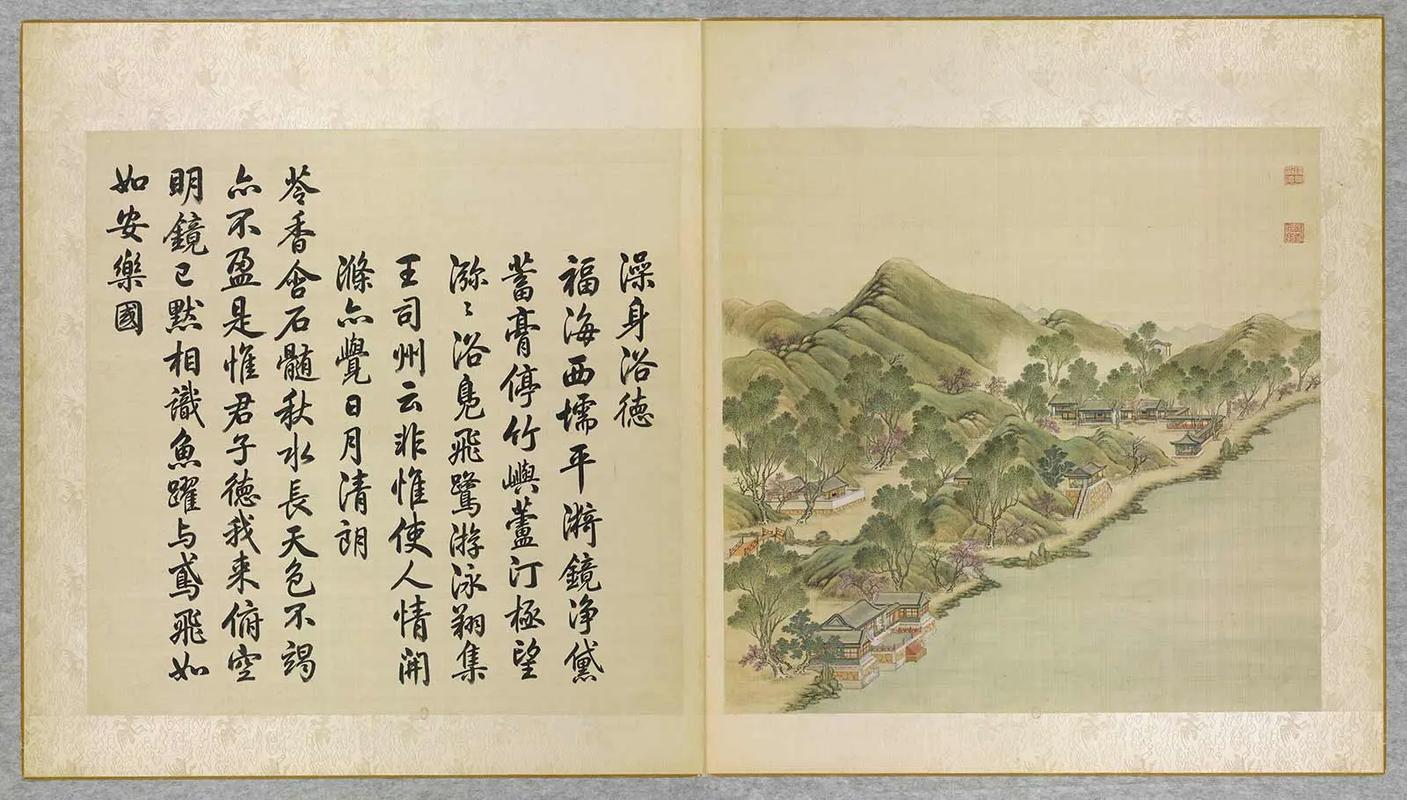 澡身浴德
福海西壖平漪鏡净黛
蓄膏停竹嶼蘆汀極望
瀰〻浴鳬飛鷺游泳翔集
王司州云非惟使人情開
滌亦覺日月清朗
苓香含石髓秋水長天色不竭
亦不盈是惟君子德我来俯空
明鏡已默相識魚躍与鳶飛如
如安樂國